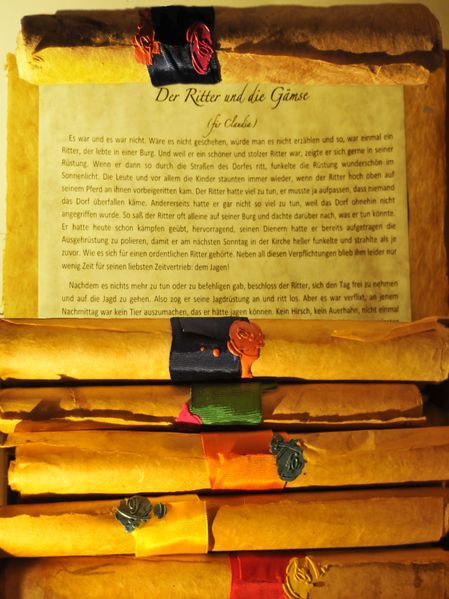 Der Ritter und die Gämse
(für Claudia)
Es war und es war nicht. Wäre es nicht geschehen, würde man es nicht erzählen und so, war einmal ein
Ritter, der lebte in einer Burg. Und weil er ein schöner und stolzer Ritter war, zeigte er sich gerne in seiner
Rüstung. Wenn er dann so durch die Straßen des Dorfes ritt, funkelte die Rüstung wunderschön im
Sonnenlicht. Die Leute und vor allem die Kinder staunten immer wieder, wenn der Ritter hoch oben auf
seinem Pferd an ihnen vorbeigeritten kam. Der Ritter hatte viel zu tun, er musste ja aufpassen, dass niemand
das Dorf überfallen käme. Andererseits hatte er gar nicht so viel zu tun, weil das Dorf ohnehin nicht
angegriffen wurde. So saß der Ritter oft alleine auf seiner Burg und dachte darüber nach, was er tun könnte.
Er hatte heute schon kämpfen geübt, hervorragend, seinen Dienern hatte er bereits aufgetragen die
Ausgehrüstung zu polieren, damit er am nächsten Sonntag in der Kirche heller funkelte und strahlte als je
zuvor. Wie es sich für einen ordentlichen Ritter gehörte. Neben all diesen Verpflichtungen blieb ihm leider nur
wenig Zeit für seinen liebsten Zeitvertrieb: dem Jagen!
Nachdem es nichts mehr zu tun oder zu befehligen gab, beschloss der Ritter, sich den Tag frei zu nehmen
und auf die Jagd zu gehen. Also zog er seine Jagdrüstung an und ritt los. Aber es war verflixt, an jenem
Nachmittag war kein Tier auszumachen, das er hätte jagen können. Kein Hirsch, kein Auerhahn, nicht einmal